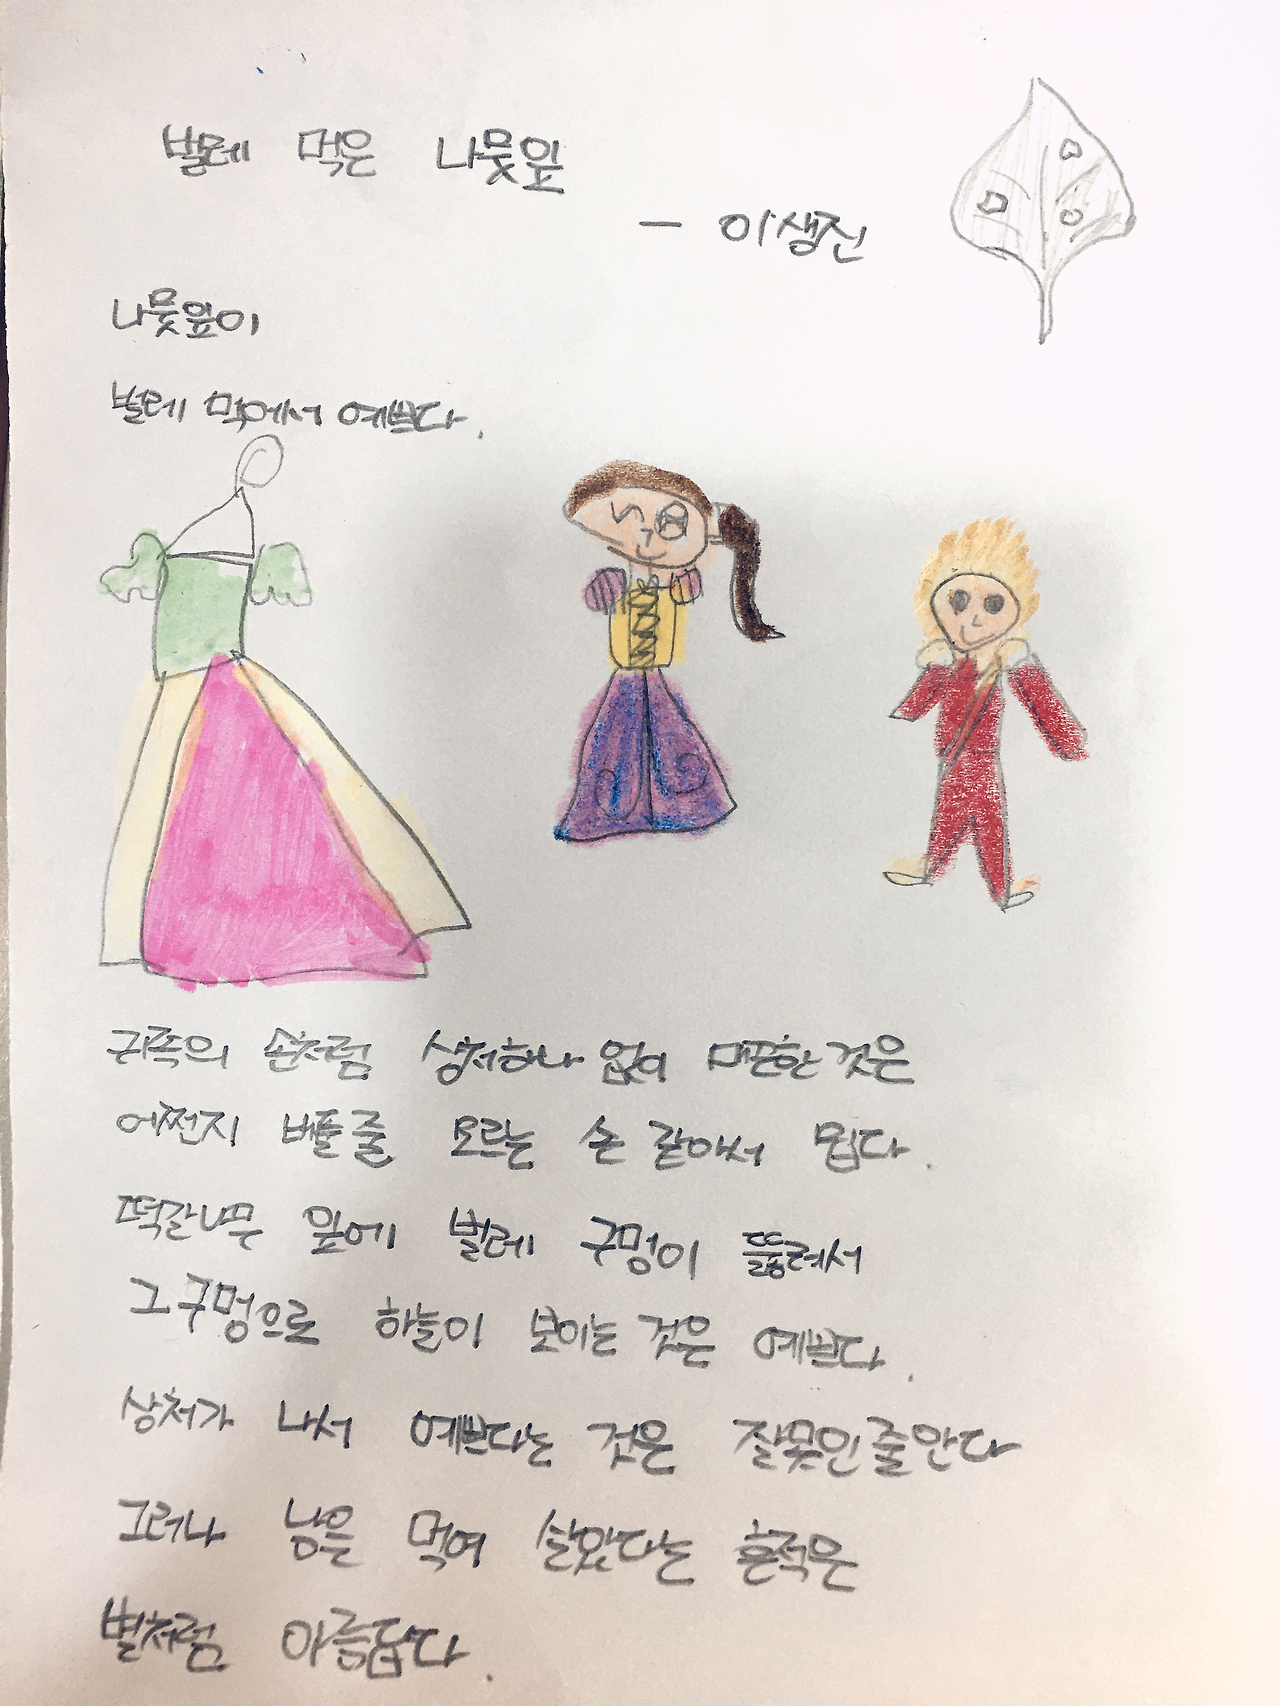 벌레 먹은 나뭇잎
- 이생진
나뭇잎이
벌레 먹에서 예쁘다.
귀족의 손처럼 상처하나 없이 매끈한 것은
어쩐지 베풀줄 모르는 손 같아서 밉다.
떡갈나무 잎에 벌레 구멍이 뚫려서
그 구멍으로 하늘이 보이는 것은 예쁘다.
상처가 나서 예쁘다는 것은 잘못인줄안다
그러나 남을 먹여 살았다는 흔적은
별처럼 아름답다.